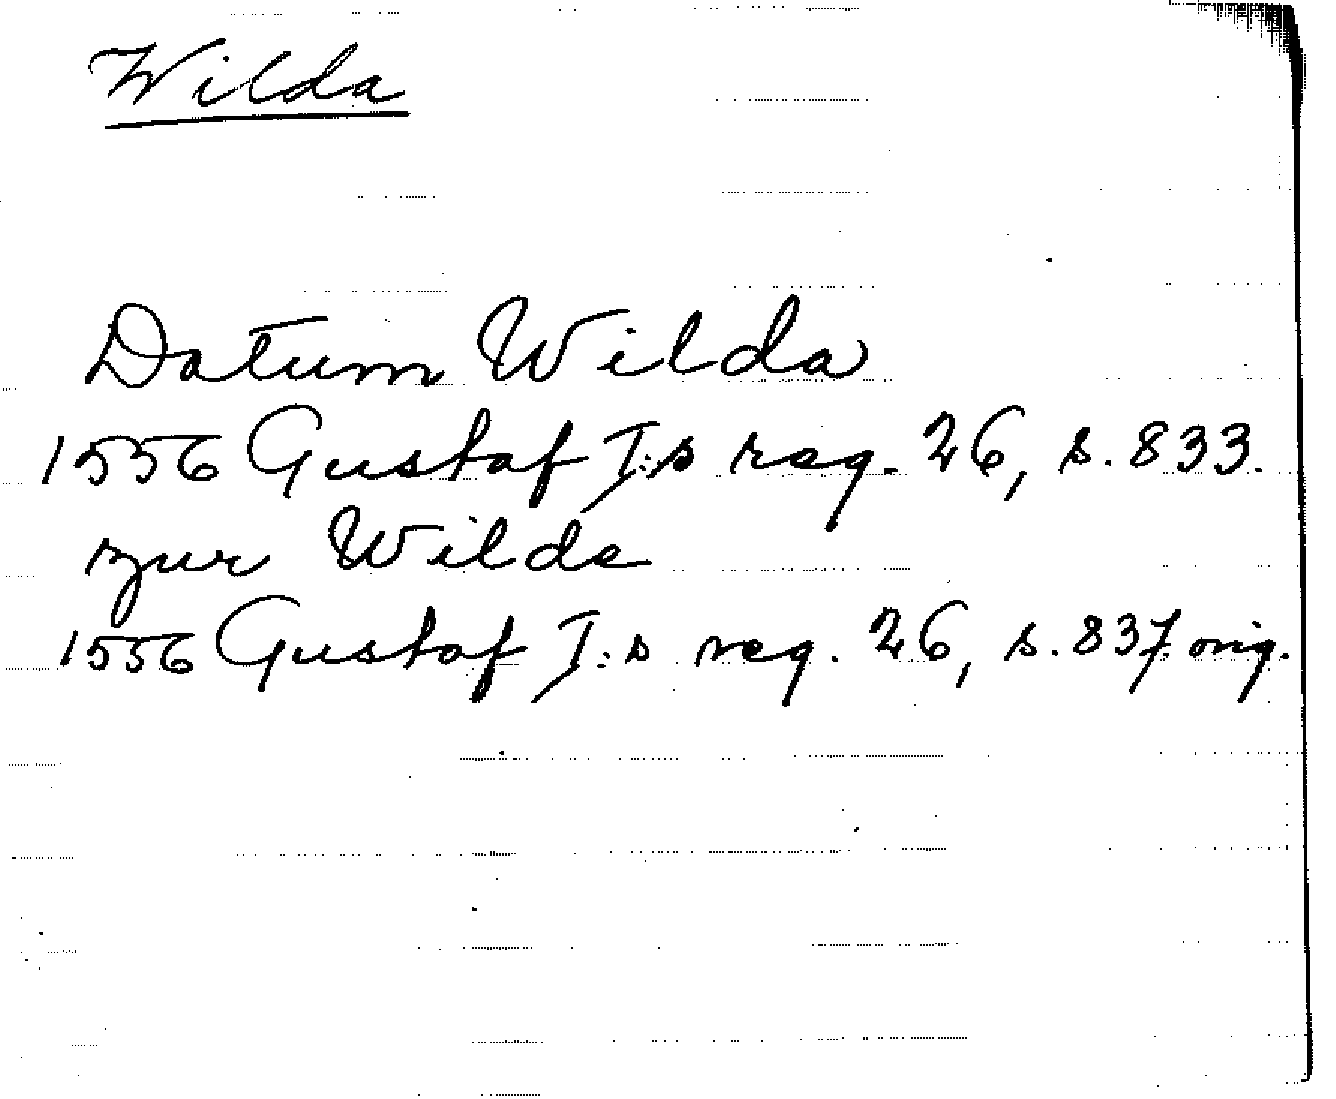 Wilda
Datum Wilda
1556 Gustaf I:s reg. 26, s. 833.
zur Wilde
1556 Gustaf I:s reg. 26, s. 837. orig.